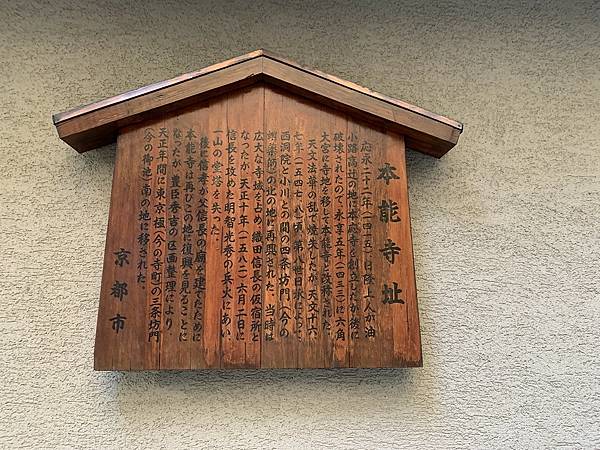 本能寺址
応永二十二年(一四一五)日隆上人が油
小路高辻の地に本応寺を創立したが、後に
破壊されたので、永享五年(一四三三)に六角
大宮に寺地を移して本能寺と改称された。
天文法華の乱で焼失したが、天文十六
七年(一五四七 八)頃、第八世日承によって、
西洞院と小川との間の四条坊門(今の
蛸薬師)の北の地に再興された。当時は
広大な寺域を占め、織田信長の仮宿所と
なったが、天正十年(一五八二)六月二日に
信長を攻めた明智光秀の兵火にあい、
一山の堂塔を失った。
後に信孝が父信長の廟を建てたために
本能寺は再びこの地に復興を見ることに
なったが、豊臣秀吉の区画整理により
天正年間に東京極(今の寺町)の三条坊門
(今の御池)南の地に移された。
京都市